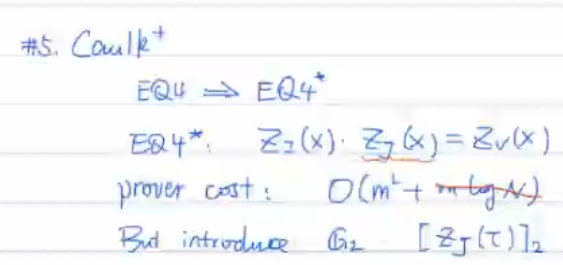 #5. Caulk+
EQ4 ⟹ EQ4*
EQ4*: Z_I(x) · Z_J(x) = Z_V(x)
prover cost: O(m² + m log N)
But introduce G₂ [Z_J(τ)]₂